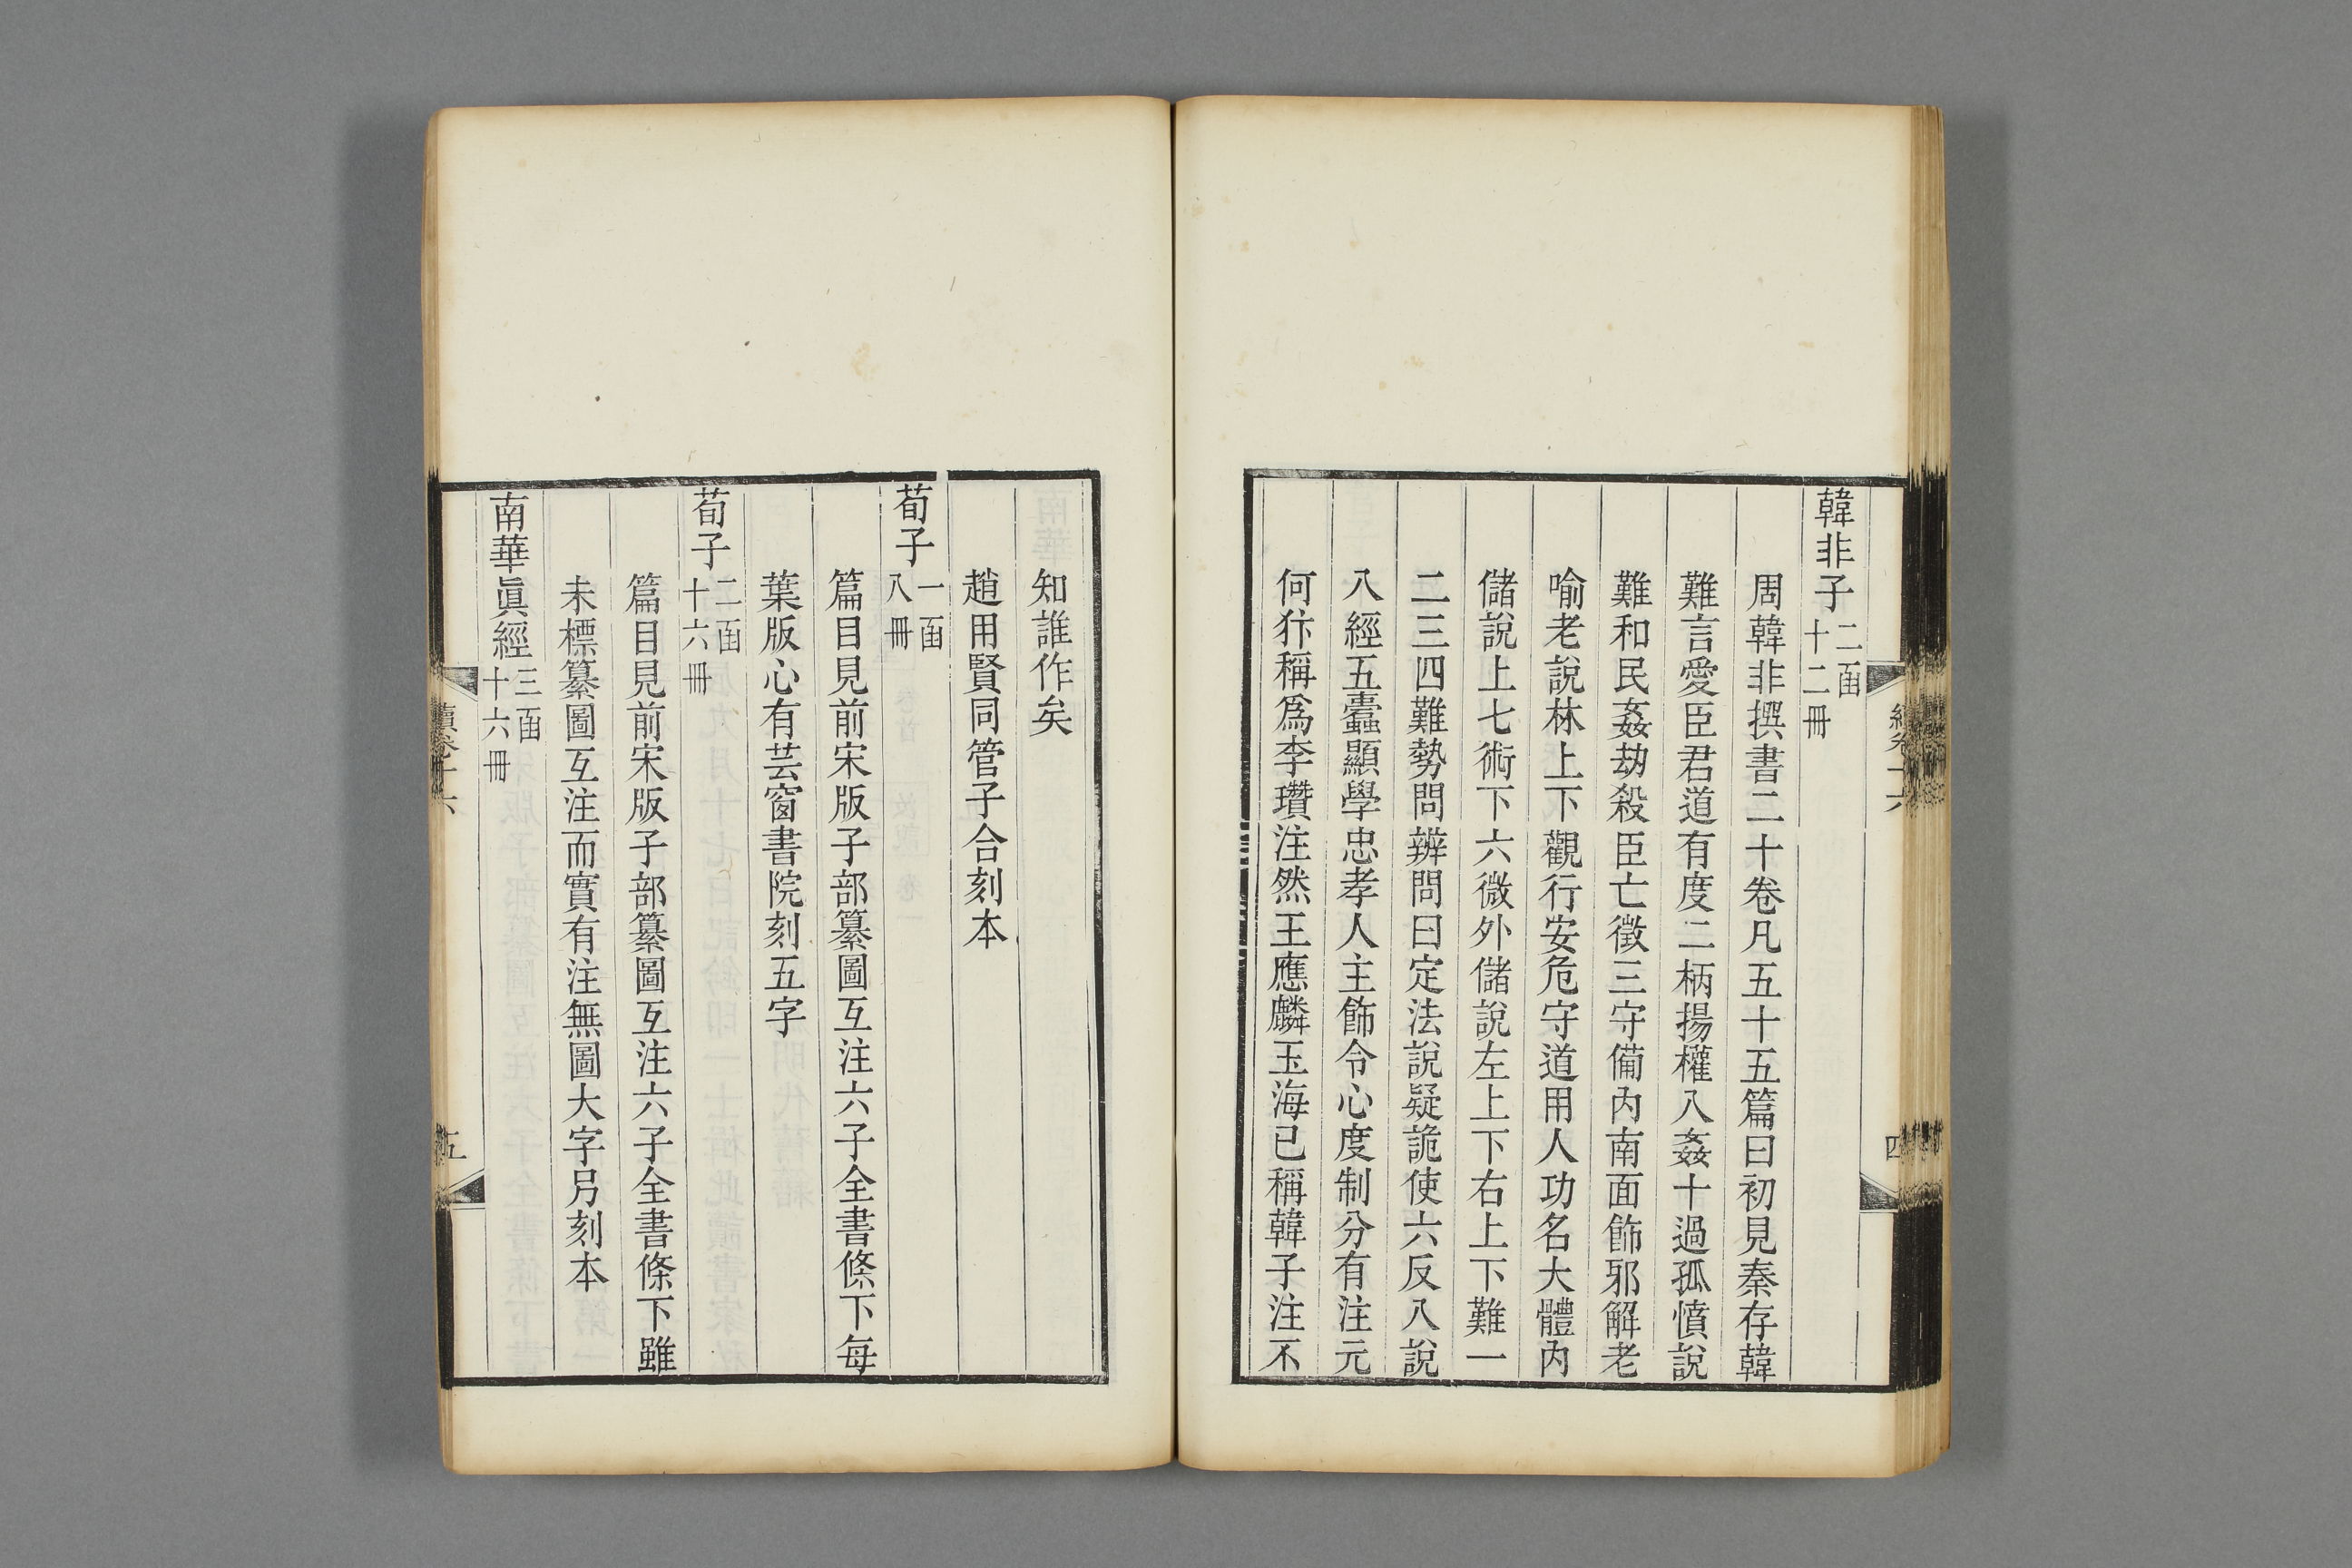 韓非子二函十二冊
周韓非撰書二十卷凡五十五篇曰初見秦存韓
難言愛臣君道有度二柄揚權八姦十過孤憤說
難和民姦劫殺臣亡徵三守備內南面飾邪解老
喻老說林上下觀行安危守道用人功名大體內
儲說上七術下六微外儲說左上下右上下難一
二三四難勢問辨問曰定法說疑詭使六反八說
八經五蠹顯學忠孝人主飾令心度制分有注元
何犿稱爲李瓚注然王應麟玉海已稱韓子注不
知誰作矣
趙用賢同管子合刻本
荀子一函八冊
篇目見前宋版子部纂圖互注六子全書條下每
葉版心有芸窗書院刻五字
荀子二函十六冊
篇目見前宋版子部纂圖互注六子全書條下雖
未標纂圖互注而實有注無圖大字另刻本
南華眞經三函十六冊
續卷十六
五